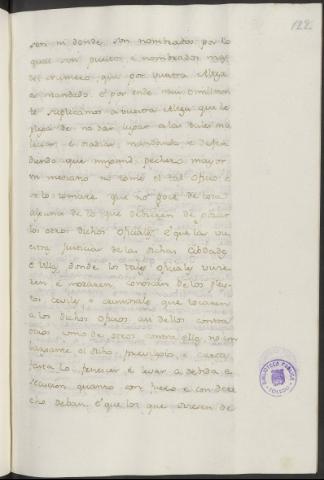 122.
son ni donde son nombrados por lo
qual son puestos e nombrados mas
del numero que por vuestra Alteza
es mandado. E por ende mui omilmen
te suplicamos a vuestra Alteza que le
plega de no dar lugar a las tales ma
licias e osadias, mandando e defen
diendo que ningund pechero mayor
ni mediano no tome el tal oficio e
si lo tomare que no goce de cosa
alguna de lo que debieren de gozar
los otros dichos oficiales. E que la vu
estra Justicia de las dichas cibdades
e villas donde los tales oficiales vivie
ren e moraren, conoscan de los plei
tos ceviles e criminales que tocaren
a los dichos oficios asi dellos contra
otros como de otros contra ellos no em
bargante el dicho previlegio, e carta
fasta lo fenecer e levar a debida e
secucion quanto con fuero e con dere
cho deban. E que los que ovieren de
BIBLIOTECA PUBLICA
TOLEDO